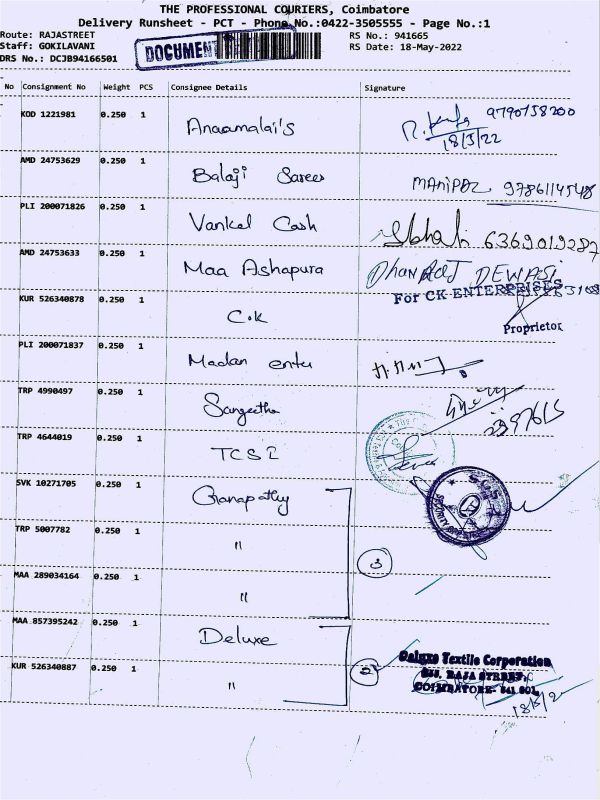 THE PROFESSIONAL COURIERS, Coimbatore
Delivery Runsheet - PCT - Phone No.:0422-3505555 - Page No.:1
Route: RAJASTREET RS No.: 941665
Staff: GOKILAVANI DOCUMENT RS Date: 18-May-2022
DRS No.: DCJB94166501
No Consignment No Weight PCS Consignee Details Signature
KOD 1221981 0.250 1 Anaamalai's 9790758200
18/5/22
AMD 24753629 0.250 1 Balaji Sarees 9786114548
PLI 200071826 0.250 1 Vankal Cash 6369019287
AMD 24753633 0.250 1 Maa Ashapura DEWASI
For CK ENTERPRISES
KUR 526340878 0.250 1 C.K
Proprietor
PLI 200071837 0.250 1 Madan enter
TRP 4990497 0.250 1 Sangeetha
TRP 4644019 0.250 1 TCS
SVK 10271705 0.250 1 Ganapathy
TRP 5007782 0.250 1 "
3
MAA 289034164 0.250 1 "
MAA 857395242 0.250 1 Deluxe
KUR 526340887 0.250 1 " 2 Deluxe Textile Corporation
RAJA STREET,
COIMBATORE- 641 001.
18/5/2